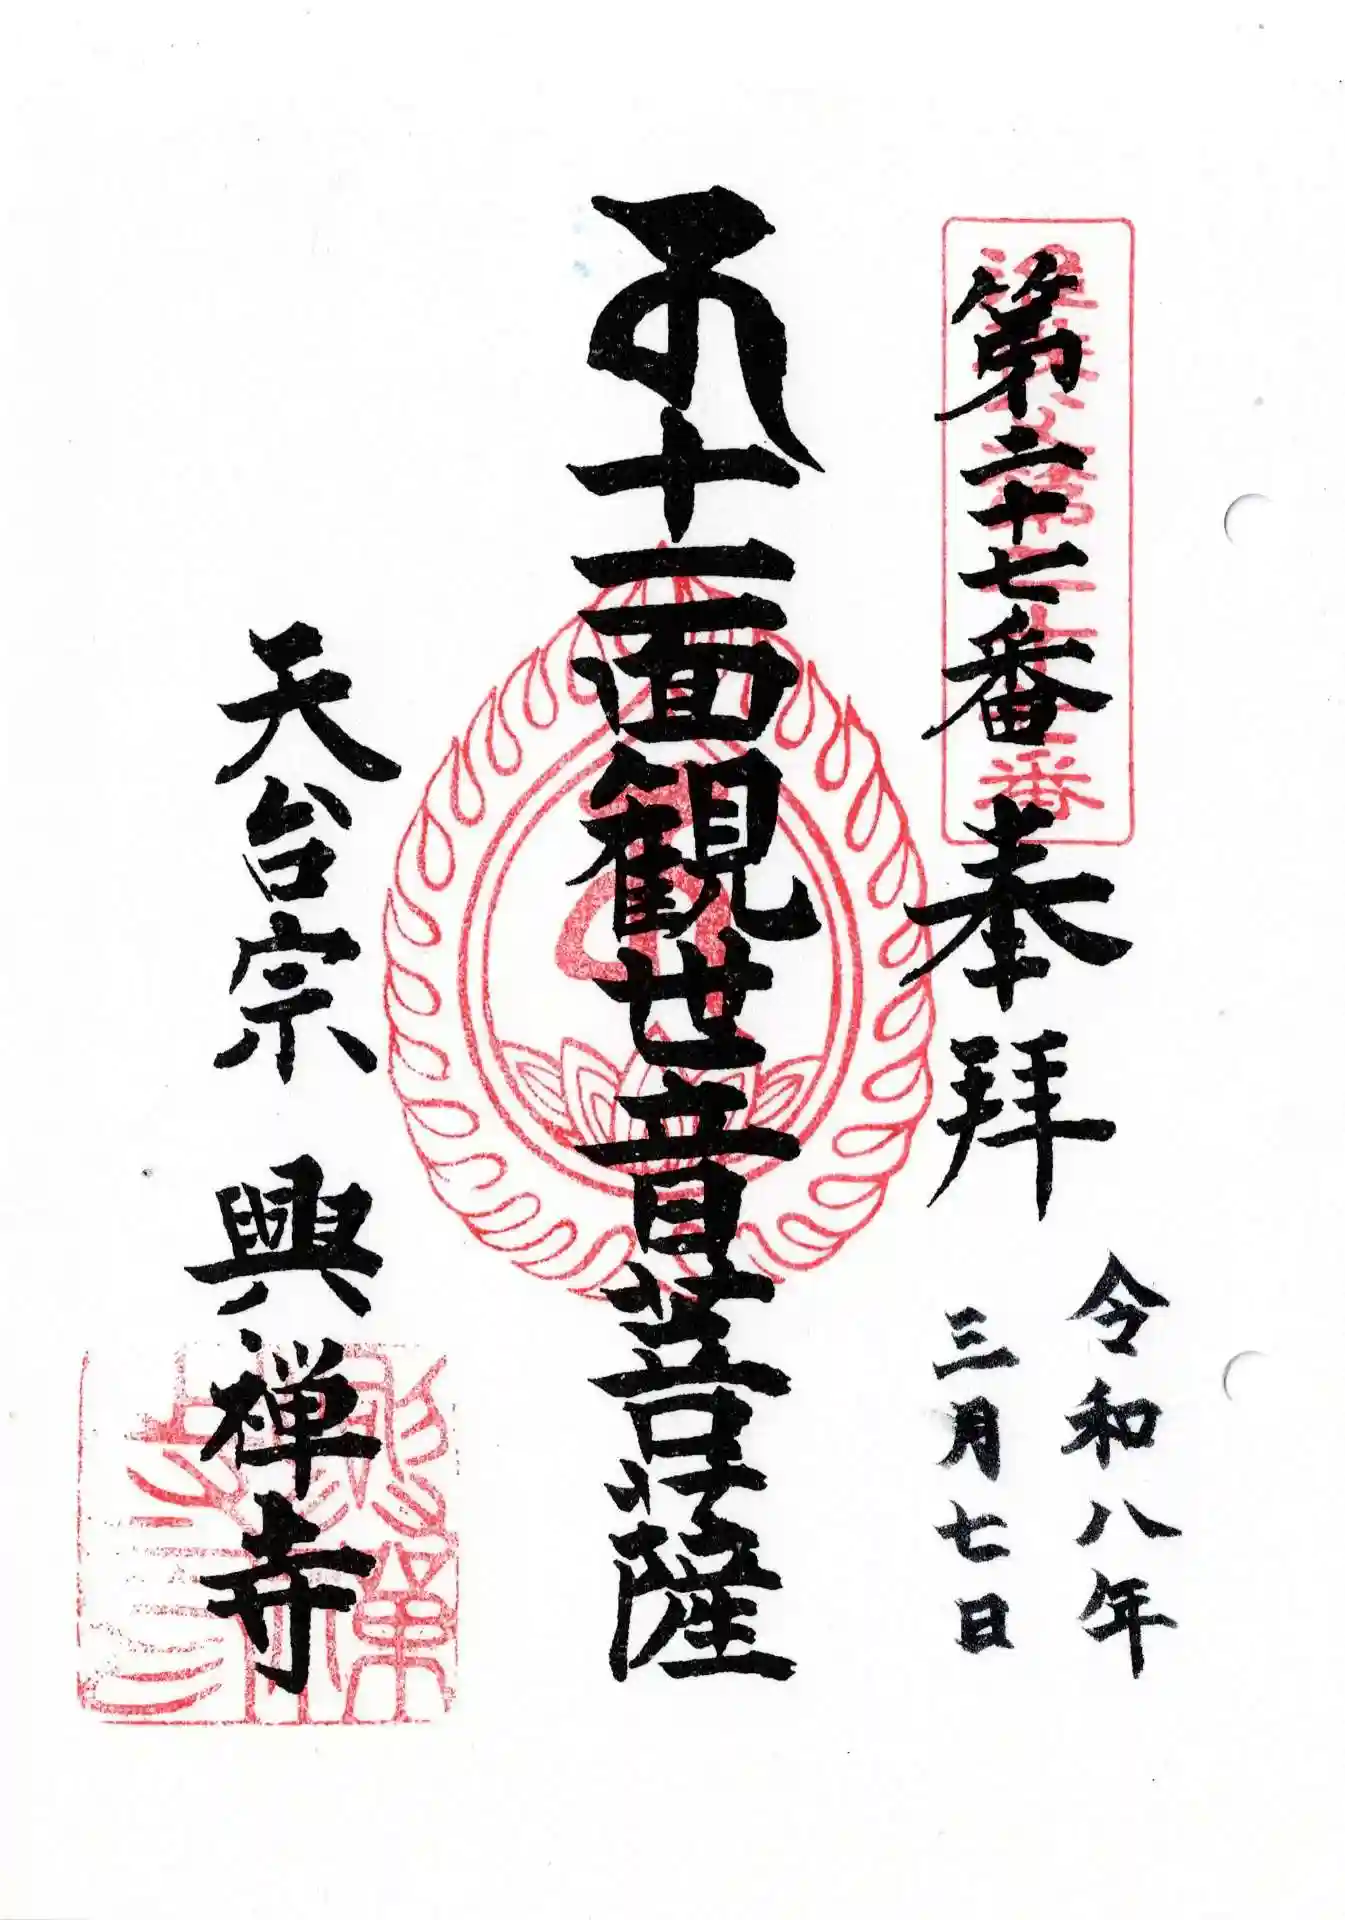 第二十七番 奉拝
令和八年
三月七日
十一面観世音菩薩
天台宗 興禅寺